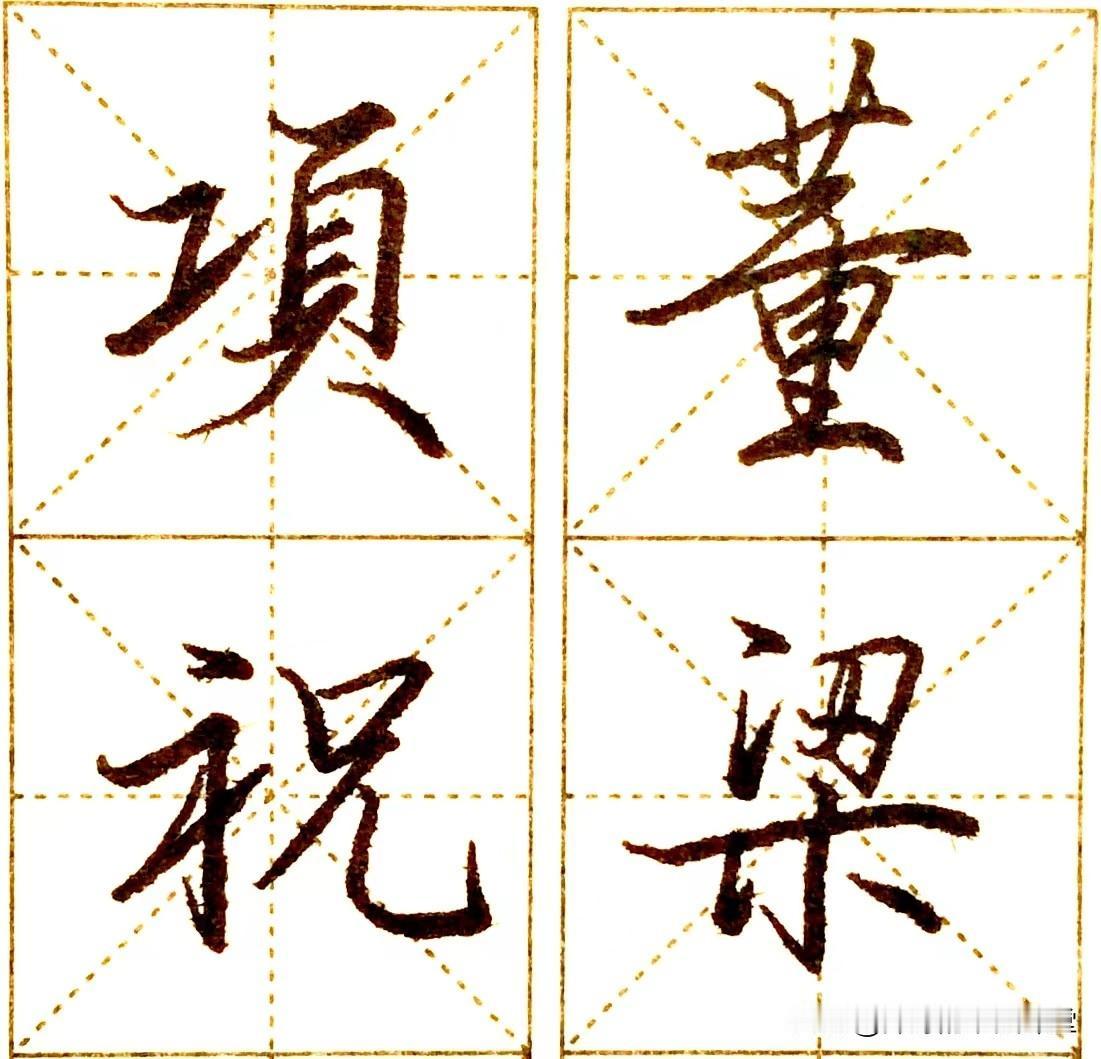 項祝
董梁